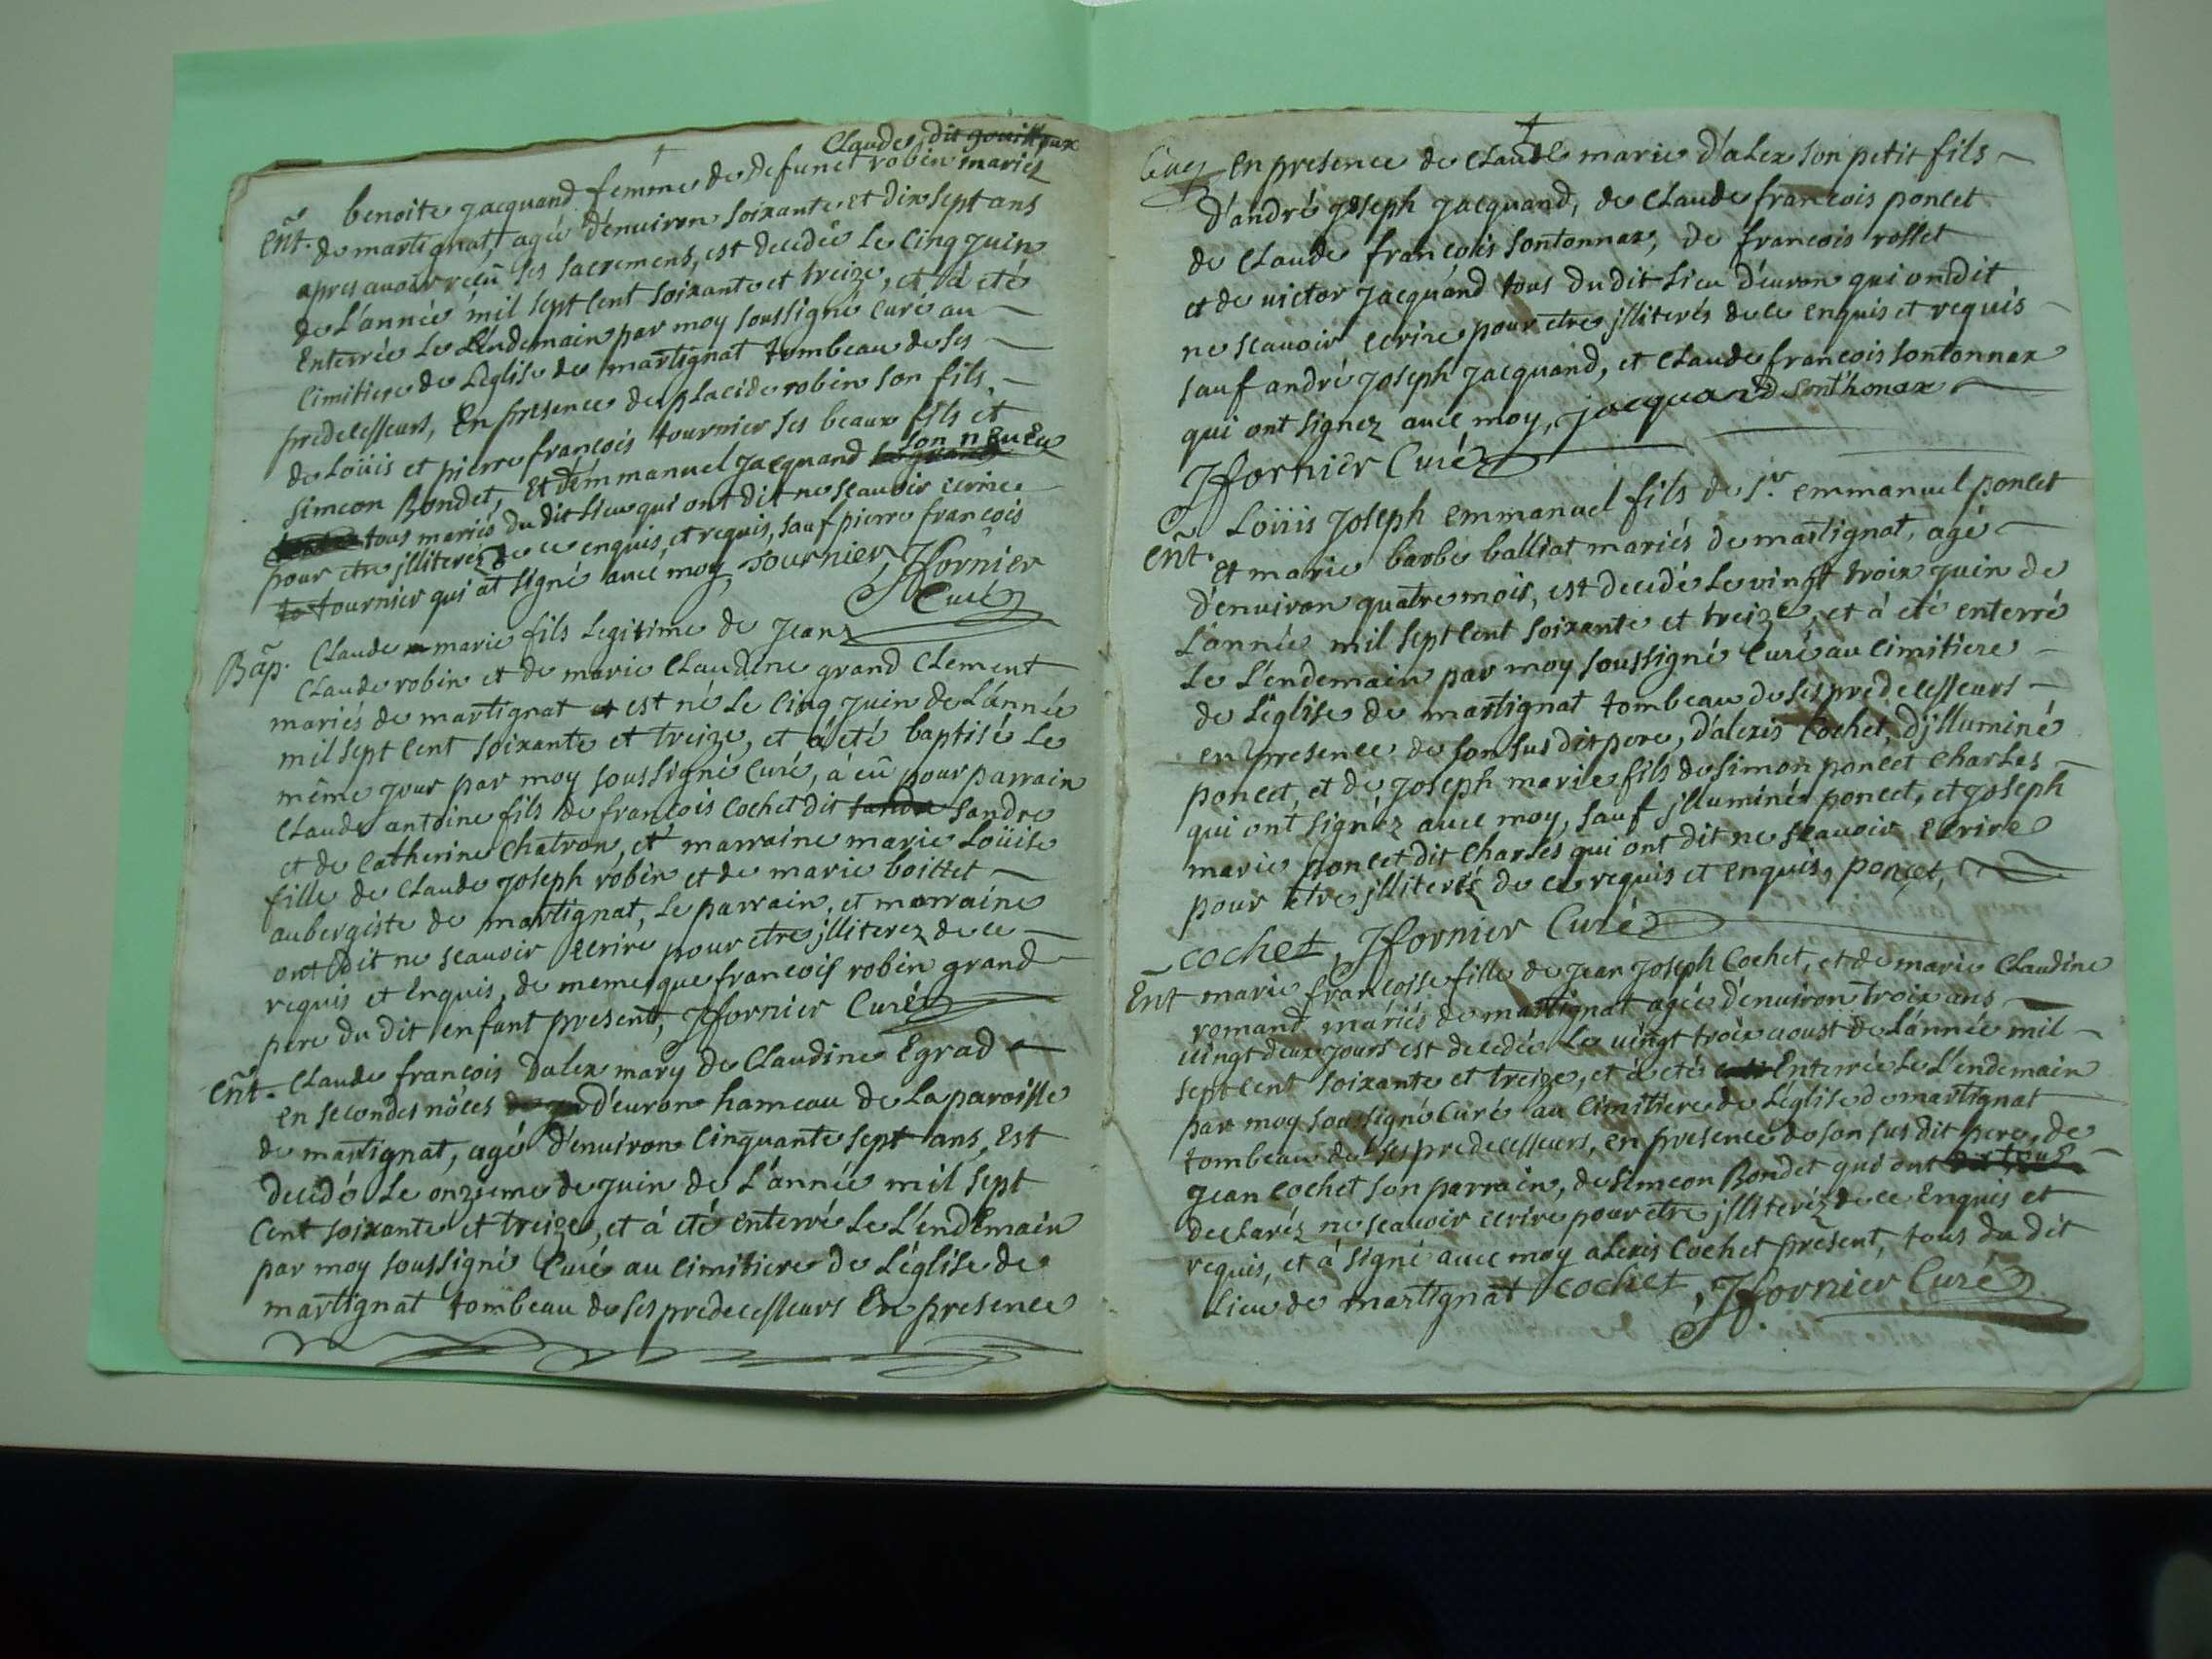 Claude dit
benoite jacquand femme de defunct robin mariez
Ent. de martignat, agée d'environ soixante et dix sept ans
apres avoir reçu ses sacremens, est decedée le cinq juin
de L'année mil sept cent soixante et treize, et à eté
Enterrée le L'endemain par moy soussigné curé au
cimitiere de L'église de martignat tombeau de ses
predecesseurs, En presence de placide robin son fils,
de Loüis et pierre françois tournier ses beaux fils et
son neveu
simeon Bondet, Et d'emmanuel jacquand
tous mariés du dit lieu qui ont dit ne sçavoir écrire
pour etre jlliterez de ce enquis, et requis, sauf pierre françois
to tournier qui at signé avec moy, Tournier, Jfornier
Curé
Bap. Claude m marie fils Legitime de Jean
Claude robin et de marie Claudine grand Clement
mariés de martignat et est né Le cinq juin de L'année
mil sept cent soixante et treize, et à été baptisé Le
même jour par moy soussigné Curé, à eü pour parrain
Claude antoine fils de françois Cochet dit sandre
et de Catherine Chatron, et marraine marie Loüise
fille de Claude joseph robin et de marie boittet
aubergiste de martignat, Le parrain, et marraine
ont dit ne sçavoir écrire pour etre jlliterez de ce
requis et Enquis, de meme que françois robin grand
pere du dit enfant present, Jfornier Curé
Ent. Claude françois Dalex mary de Claudine Egrad
en secondes nôces d'evron hameau de La paroisse
de martignat, agé d'environ Cinquante sept ans, Est
decedé Le onzieme de juin de L'année mil sept
Cent soixante et treize, et à eté enterré Le L'endemain
par moy soussigné Curé au Cimitiere de L'église de
martignat tombeau de ses predecesseurs En presence
en presence de Claude marie D'alex son petit fils
d'andré joseph jacquand, de Claude francois poncet
de Claude françois sontonnax, de françois rosset
et de victor jacquand tous du dit Lieu d'evron qui ont dit
ne sçavoir écrire pour etre jlliterés de ce enquis et requis
sauf andré joseph jacquand, et Claude françois sontonnax
qui ont signez avec moy, jacquand Sonthonax
Jfornier Curé
Loüis joseph emmanuel fils de s.r emmanuel poncet
Ent. et marie barbe balliat mariés de martignat, agé
d'environ quatre mois, est decedé Le vingt troix juin de
L'année mil sept cent soixante et treize, et à eté enterré
Le L'endemain par moy soussigné Curé au Cimitiere
de L'église de martignat tombeau de ses predecesseurs
en presence de son sus dit pere, d'alexis Cochet, d'jlluminé
poncet, et de joseph marie fils de simon poncet Charles
qui ont signéz avec moy, sauf jlluminé poncet, et joseph
marie poncet dit Charles qui ont dit ne sçavoir ecrire
pour etre jlliteréz de ce requis et enquis, poncet,
cochet, Jfornier Curé
Ent marie françoise fille de jean joseph Cochet, et de marie Claudine
romand mariés de martignat agée d'environ troix ans
vingt deux jours est decedée Le vingt troix aoust de L'année mil
sept cent soixante et treize, et à été Enterrée Le L'endemain
par moy soussigné Curé au Cimitiere de L'église de martignat
tombeau de ses predecesseurs, en presence de son sus dit pere, de
jean cochet son parrain, de simeon Bondet qui ont
declaréz ne sçavoir écrire pour etre jlliteréz de ce Enquis et
requis, et à signé avec moy alexis Cochet present, tous du dit
Lieu de martignat cochet, Jfornier Curé